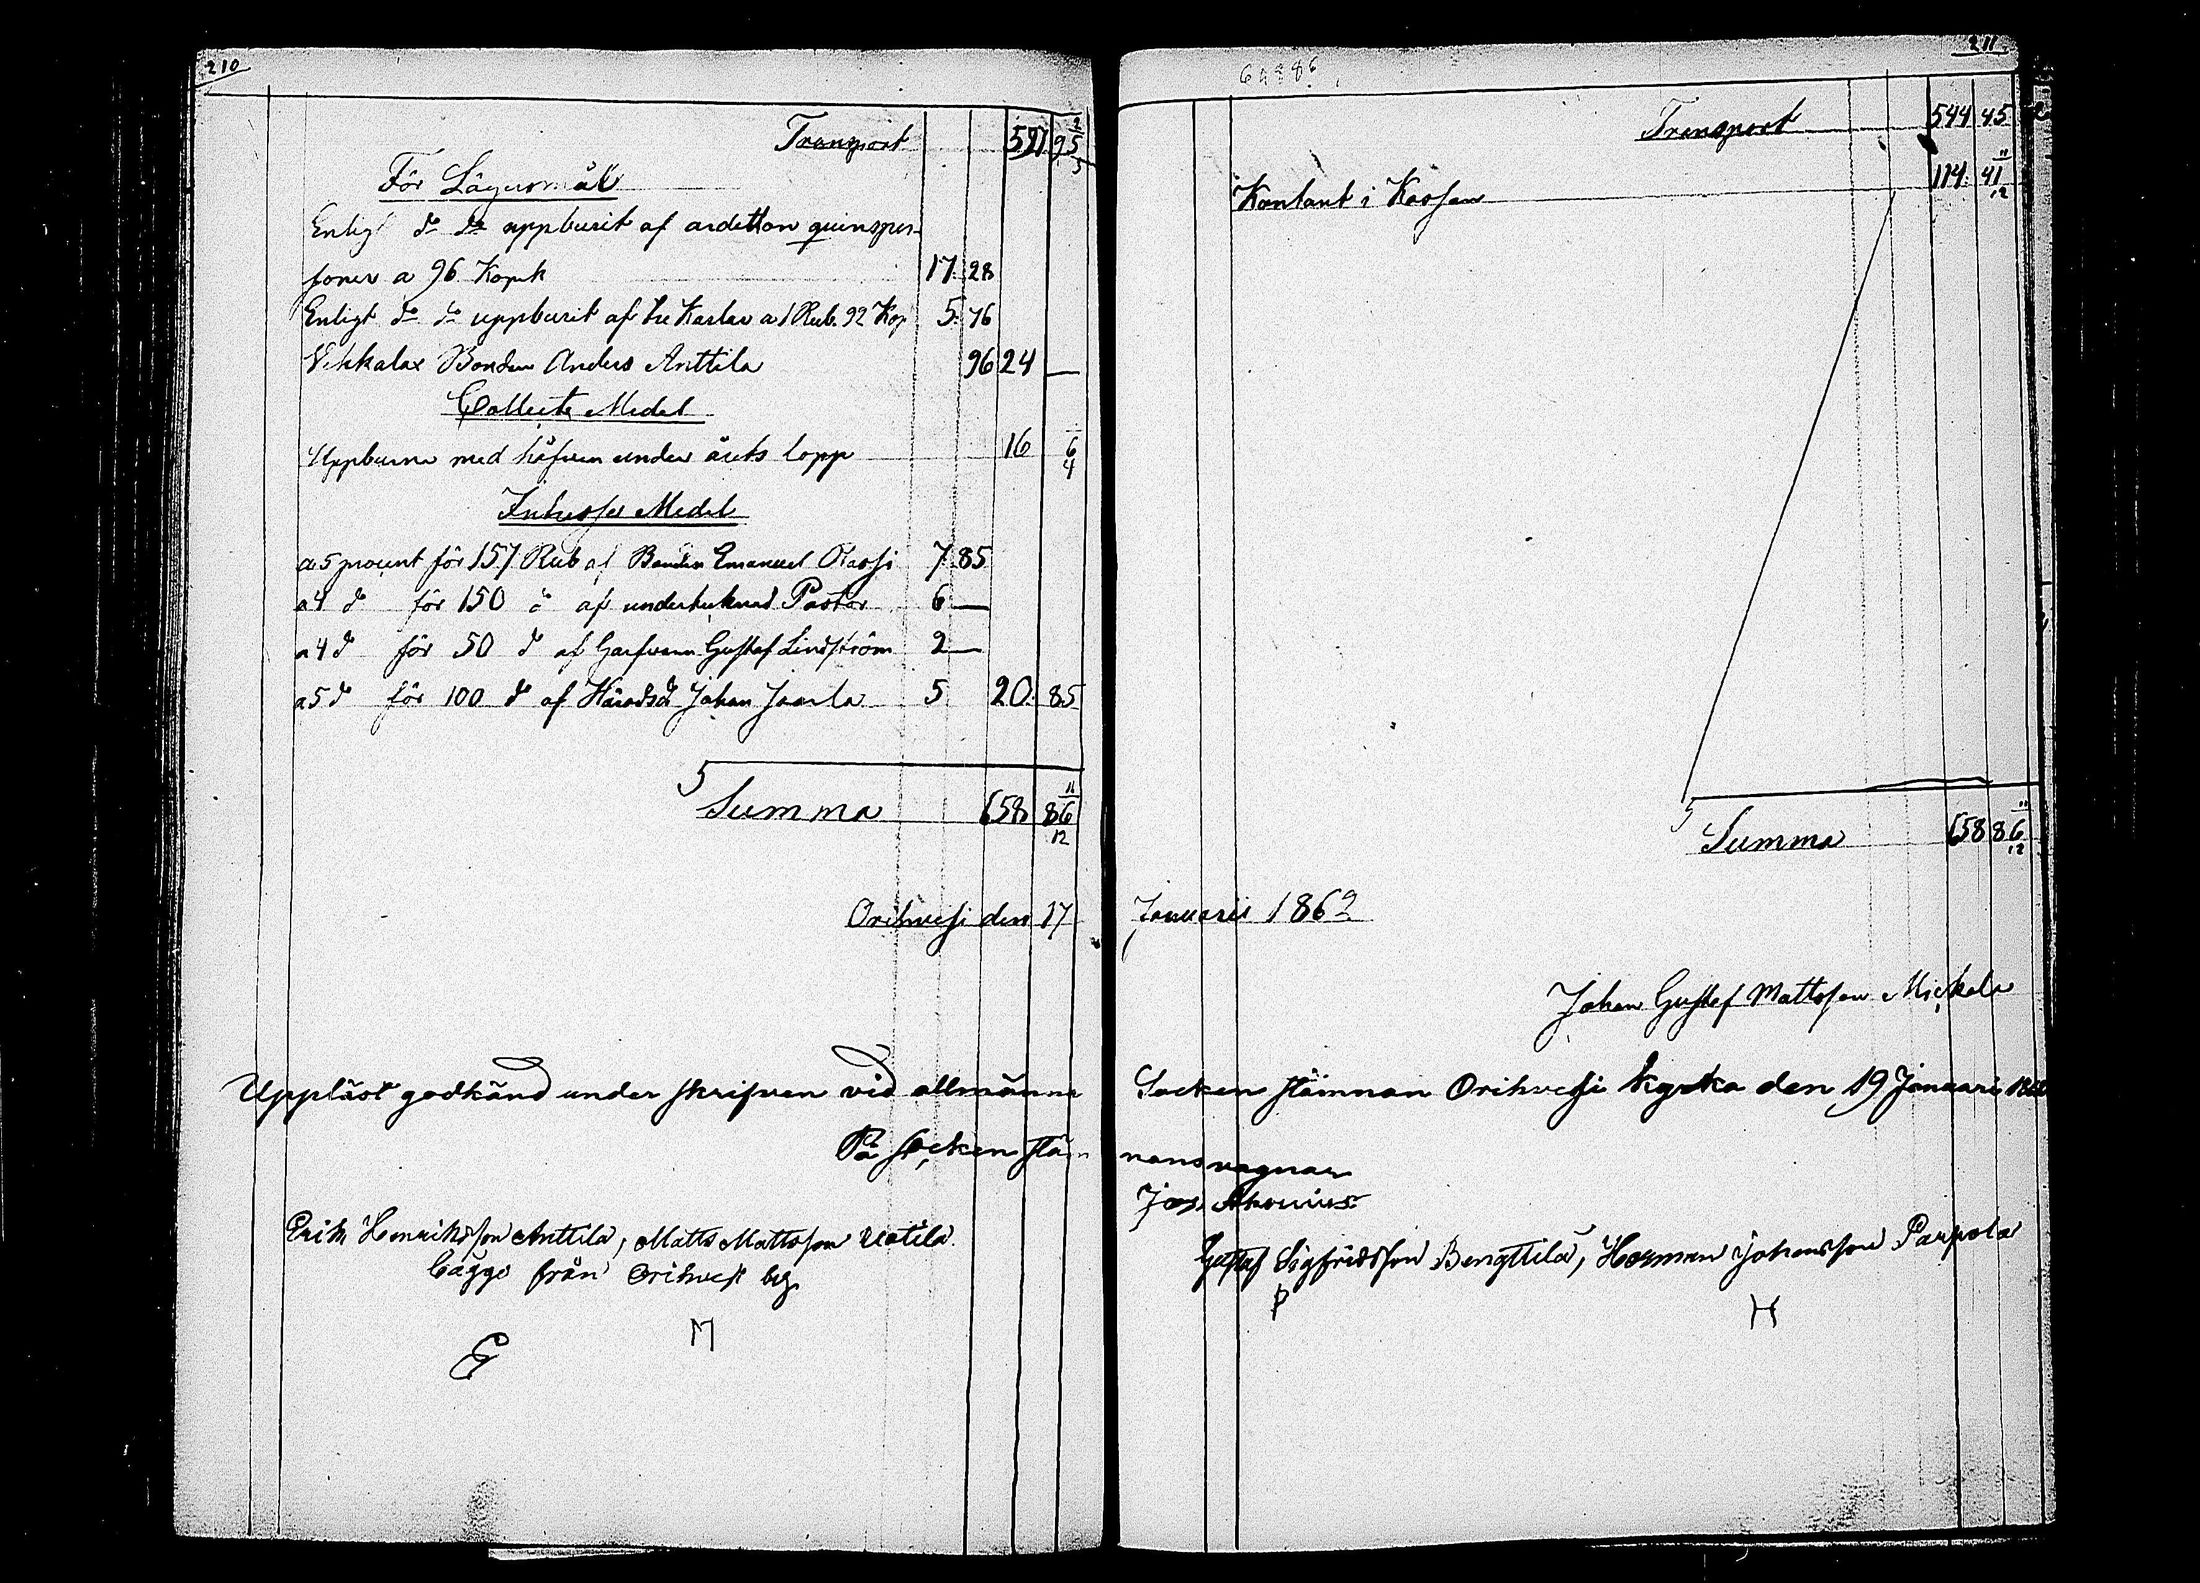 210
Transport 597 95 2/5
För Lägersmål
Enligt do do uppburit af aderton quinsper-
soner a 96 Kopek 17. 28
Enligt do do uppburit af tre Karlar a 1 Rub. 92 Kop 5. 76
Vehkalax Bonden Anders Anttila 96 24 —
Collects Medel
Uppburne med håfven under årets lopp 16 6 1/4
Intresse Medel
a 5 procent för 157 Rub af Bonden Emanuel 7. 85
a 4 do för 150 do af undertecknad Pastor 6 —
a 4 do för 50 do af Garfvaren Gustaf Lindström 2 —
a 5 do för 100 do af Häradsd Johan Jaarla 5. 20. 85
Summa 658 86 11/12
Orihvesi den 17
Uppläst godkänd under skrifven vid allmänna
På socken stäm
Erik Henriksson Anttila, Matts Mattsson Uotila
bägge från Orihvesi by.
M
E
211
Transport 544 45
Kontant i Kassan 114. 41 11/12
Summa 658 86 11/12
Januarii 1862
Johan Gustaf Mattsson Mickola
Socken stämnan Orihvesi kyrka den 19 Januari 1862
nans vägnar
Jos.
Gustaf Sigfridsson Bengttilä, Herman Johansson Parpola
P
H